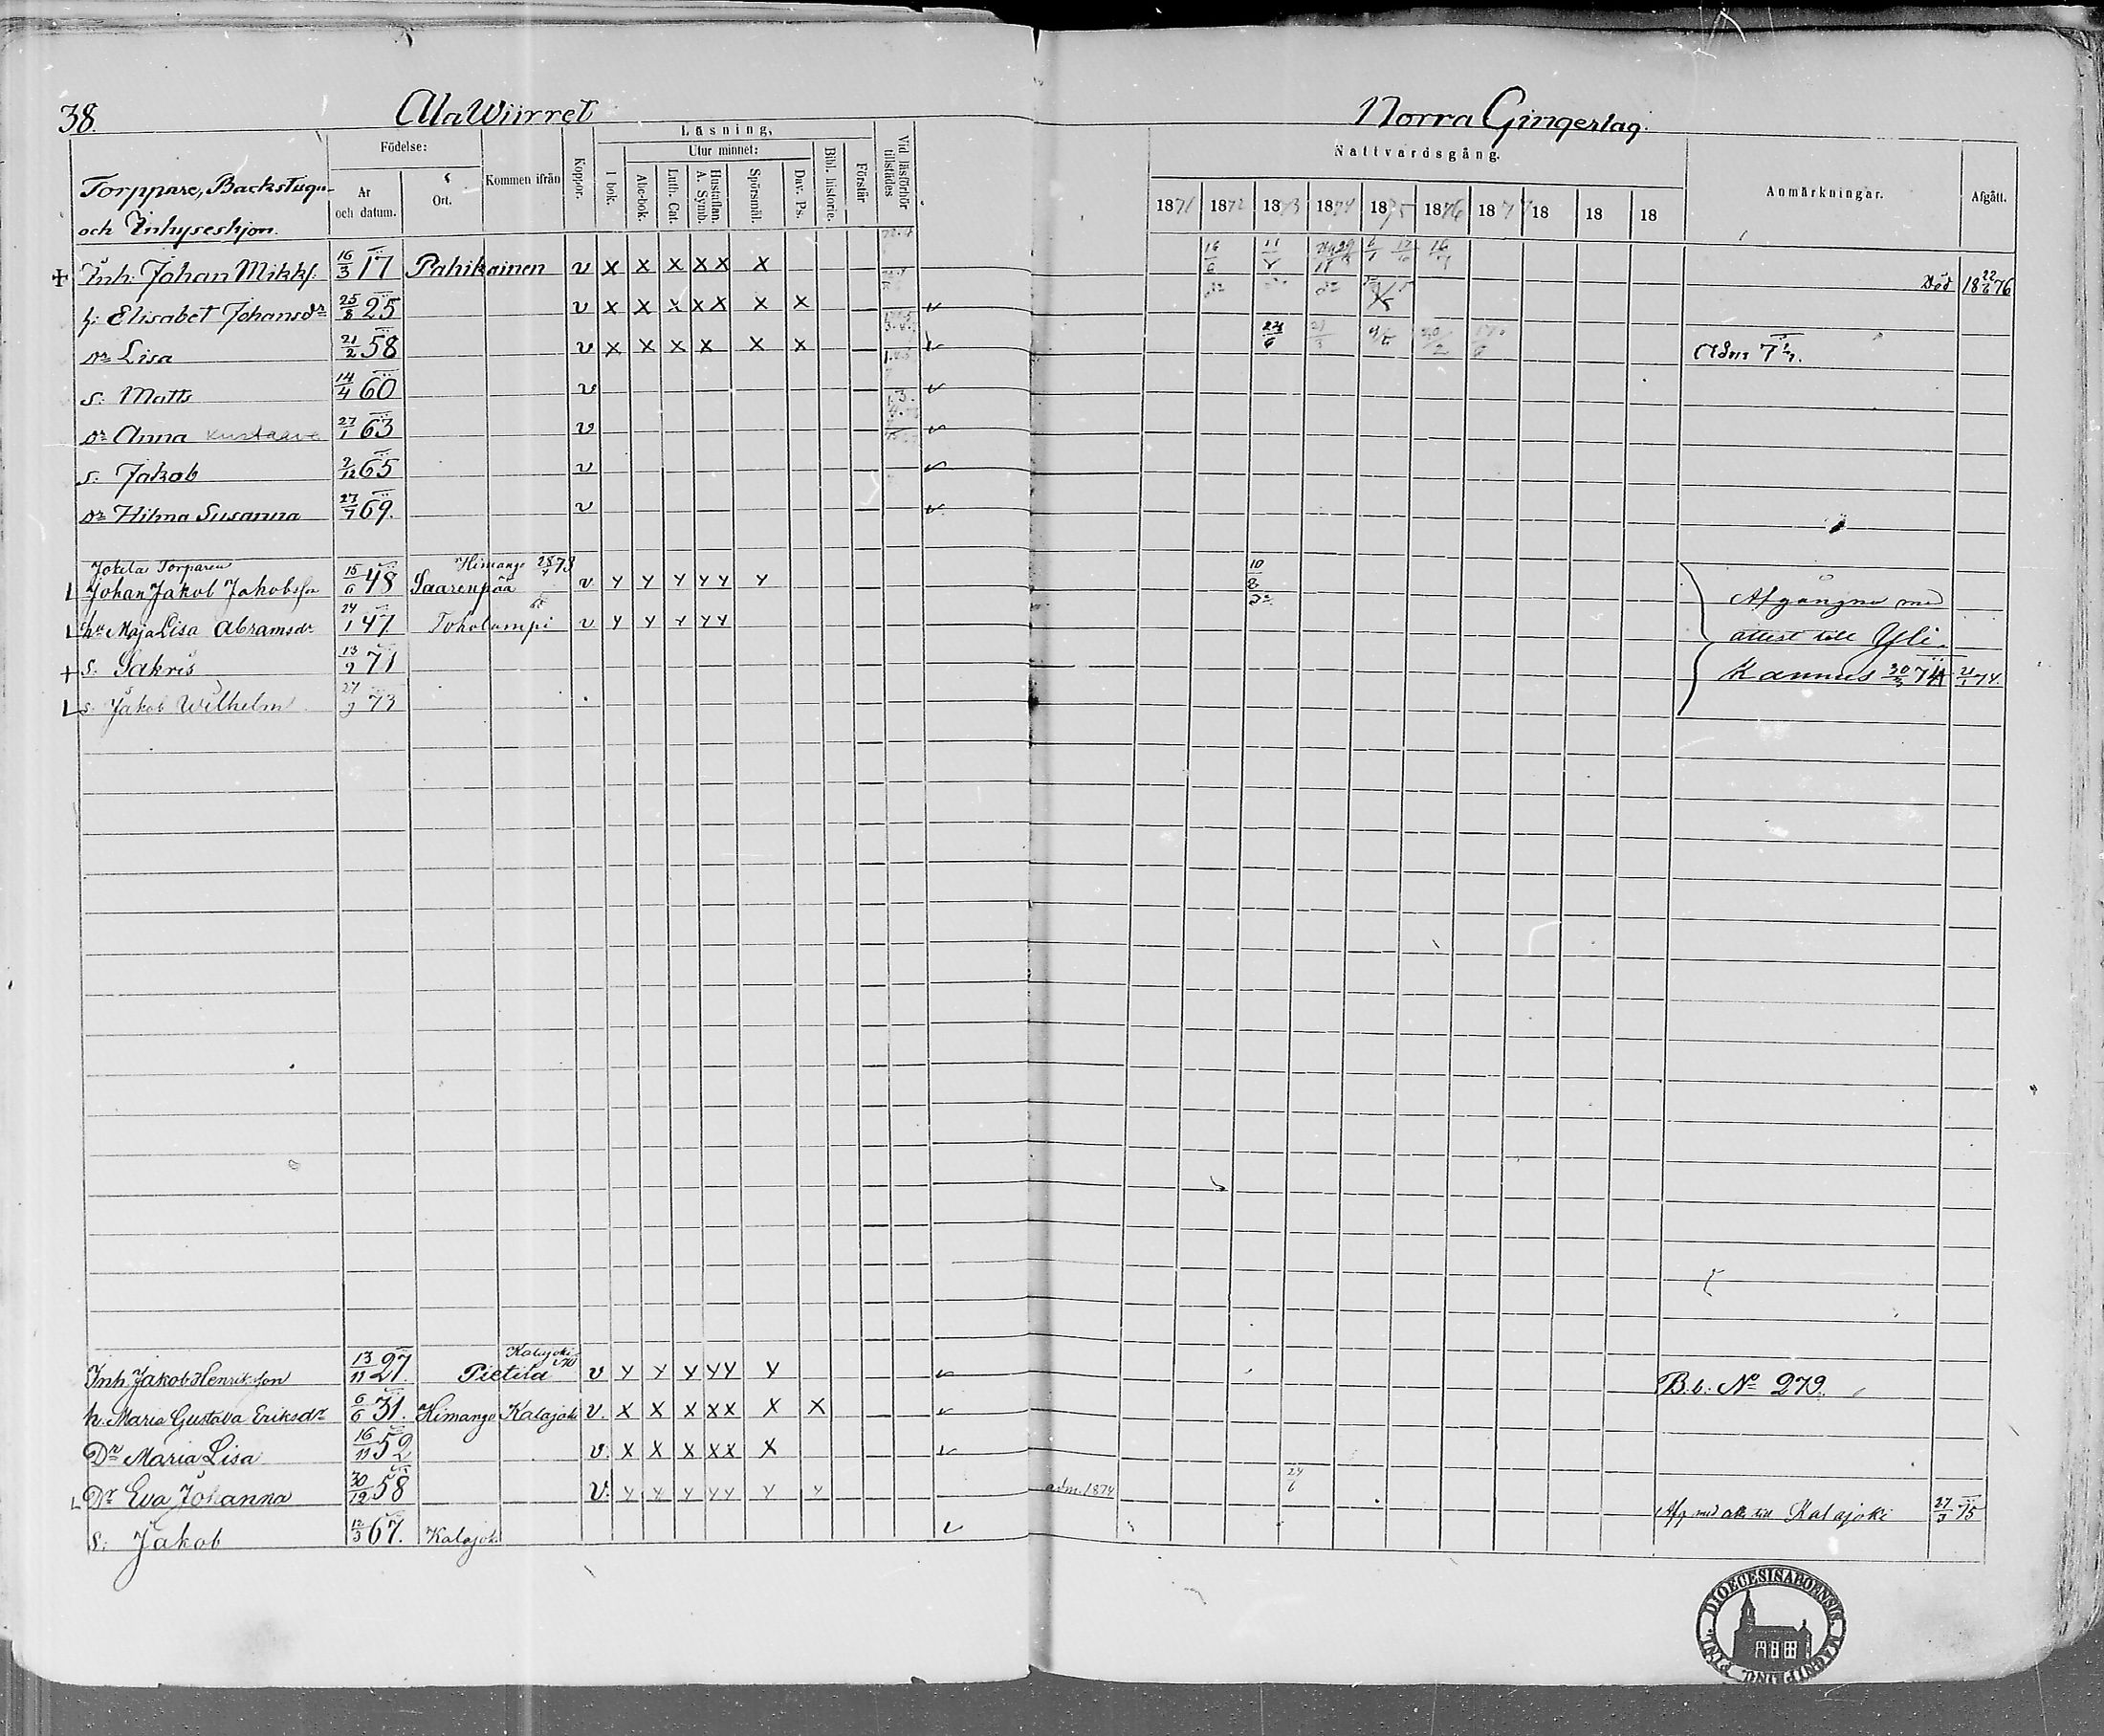 38.
Ala Wiirret
Norra Gingerlag.
Torppare, Backstugu-
och Inhyseshjon.
Födelse:
År
och datum.
Ort.
Kommen ifrån
Koppor.
Läsning,
I bok.
Utur minnet:
Abc-bok.
Luth. Cat.
Hustaflan.
A. Symb.
Spörsmål.
Dav. Ps.
Bibl. historie.
Förstår
Vid läsförhör
tillstädes
Nattvardsgång.
1871 1872 1873 1874 1875 1876 1877 18 18 18
Anmärkningar.
Afgått.
Inh. Johan Mikks. 16/3 17 Pahikainen v x x x x x x Död 18 22/6 76
h: Elisabet Johansdr 25/8 25 v x x x x x x x
Dr Lisa 21/2 58 v x x x x x x 24/6
s: Matts 14/4 60 v
Dr Anna Kustaava 27/1 63 v
s: Jakob 2/12 65 v
Dr Hilma Susanna 27/7 69. v
Jokela Torparen Himango
Johan Jakob Jakobsson 15/6 48 Saarenpää v y y y y y y 10/8
Afgångne med
hu Maja Lisa Abramsdr 24/1 47 Toholampi v y y y y y
attest till Yli-
s: Sakris 13/9 71
Kannus 30/3 74 21/1 74.
s: Jakob Wilhelm 27/9 73
Kalajoki
Inh Jakob Henriksson 13/11 27. Pietila v y y y y y y B.b. No 279.
h. Maria Gustava Eriksdr 6/6 31. Himango Kalajoki v. x x x x x x x
Dr Maria Lisa 16/11 52 v. x x x x x x
Dr Eva Johanna 30/12 58 v. y y y y y y y adm. 1874 24/6 Afg med att. till Kalajoki 27/3 75
s: Jakob 12/3 67. Kalajoki
DIOECESIS ABOENSIS